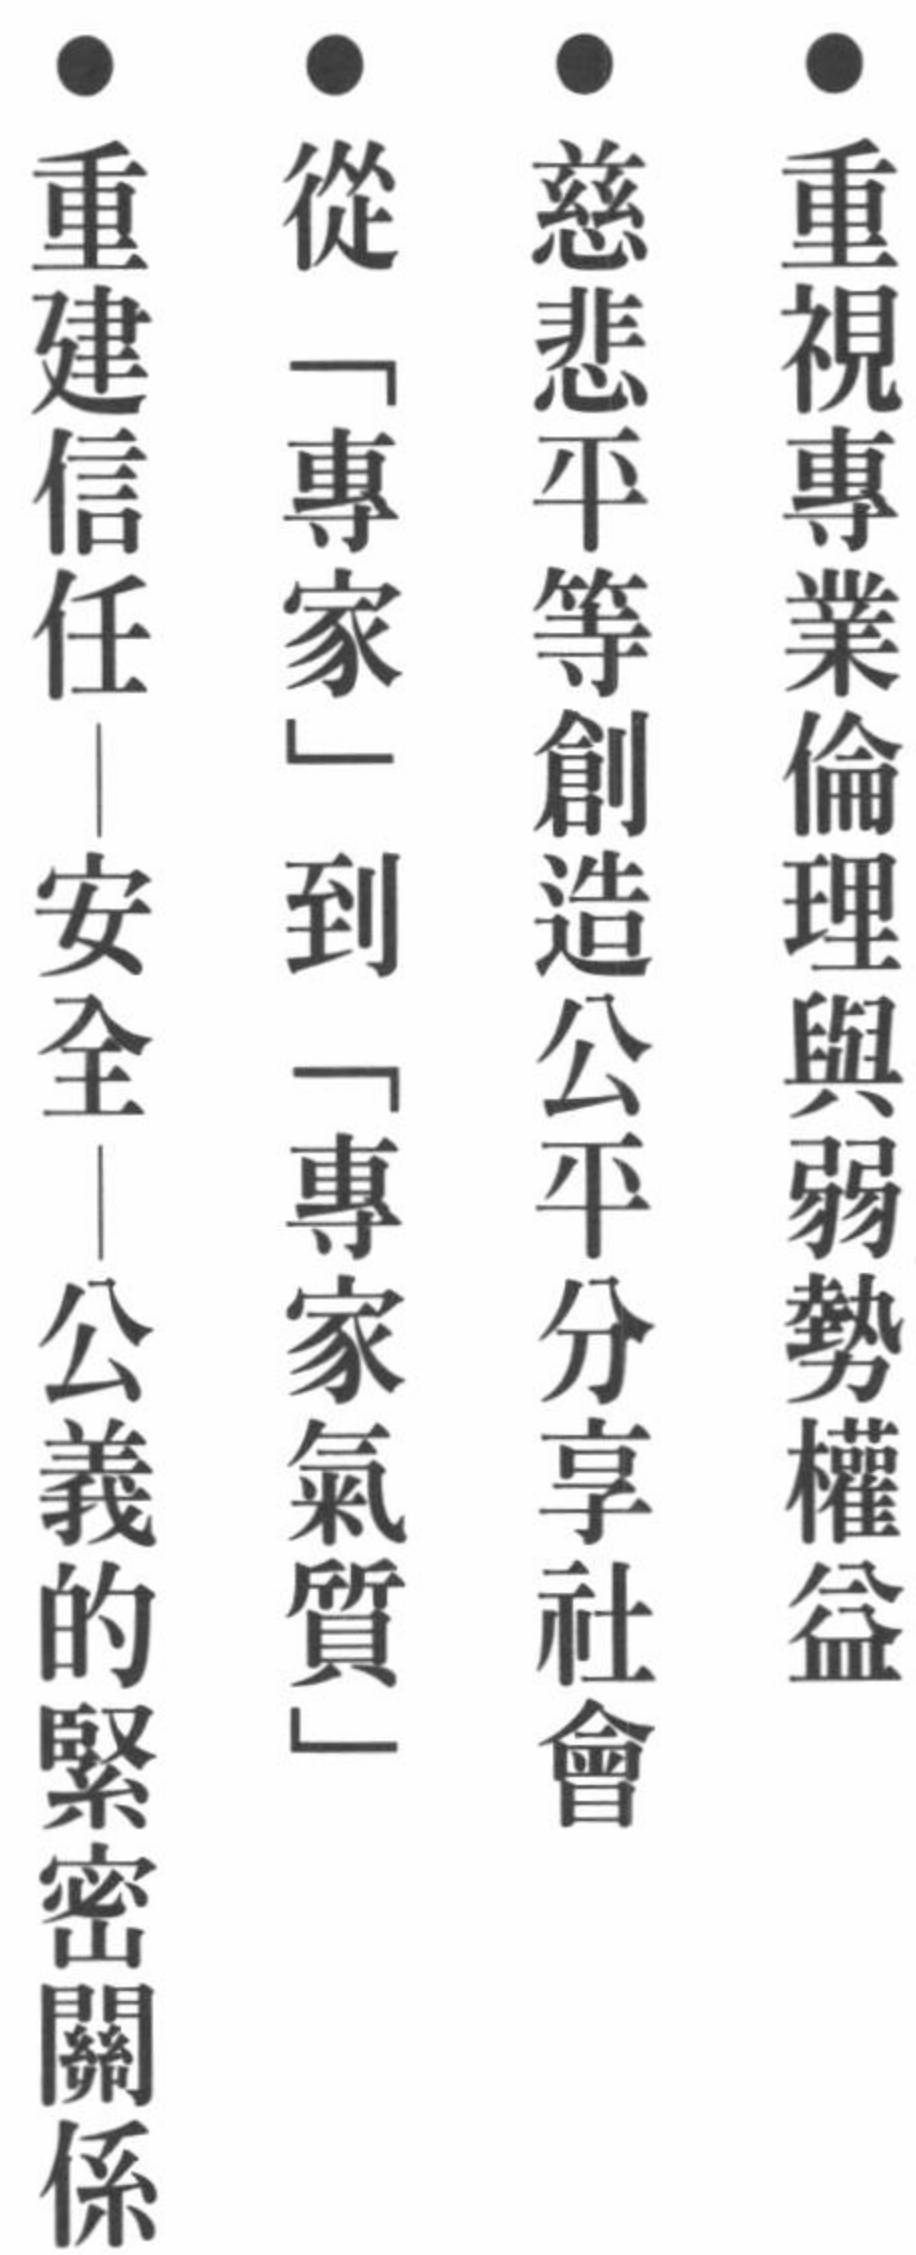 ●重視專業倫理與弱勢權益
●慈悲平等創造公平分享社會
●從「專家」到「專家氣質」
●重建信任—安全—公義的緊密關係